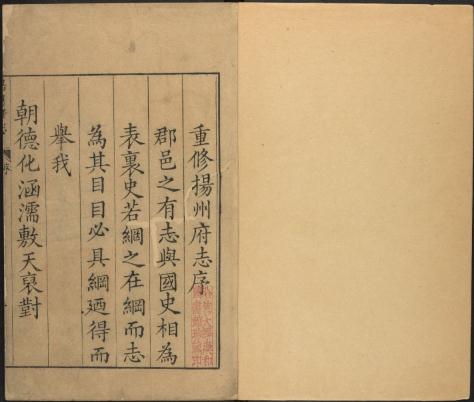 重修揚州府志序
郡邑之有志與國史相為
表裏史若綱之在綱而志
為其目目必具綱廼得而
舉我
朝德化涵濡敷天裒對